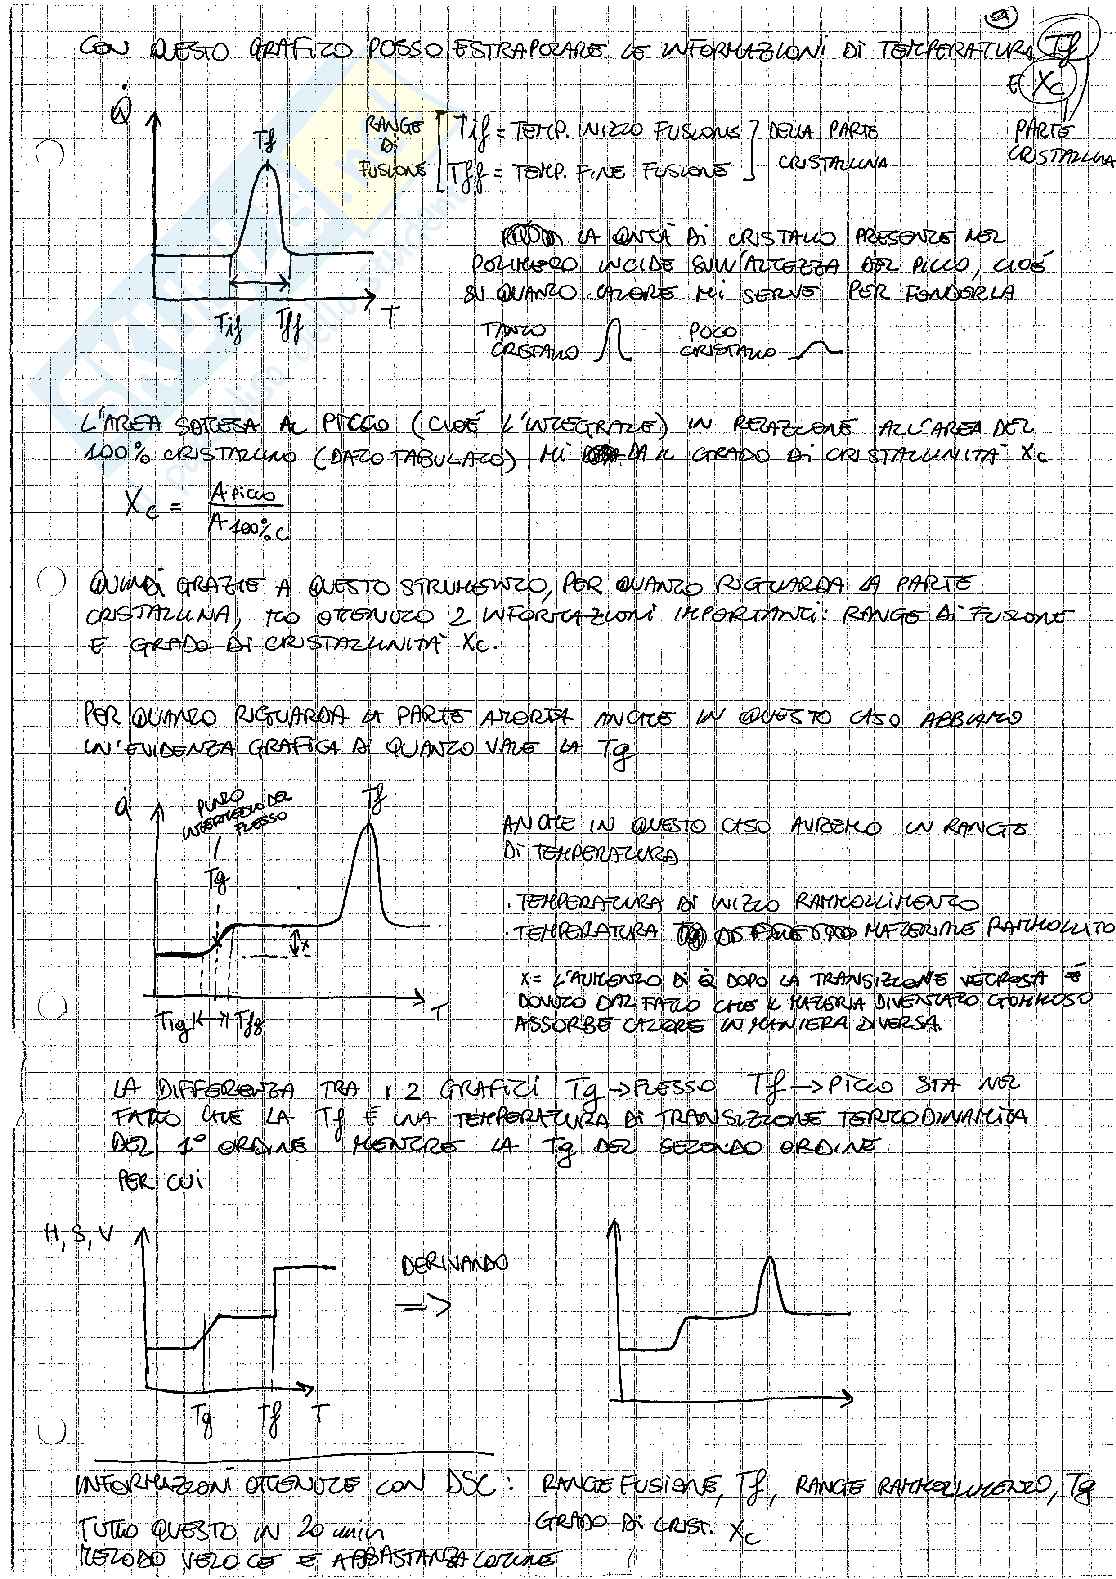 CON QUESTO GRAFICO POSSO ESTRAPOLARE LE INFORMAZIONI DI TEMPERATURA Tf
E Xc
PARTE
CRISTALLINA
Q̇
Tf
RANGE
DI
FUSIONE
Tif = TEMP. INIZIO FUSIONE
Tff = TEMP. FINE FUSIONE
DELLA PARTE
CRISTALLINA
Tif Tff T
LA QNTÀ DI CRISTALLO PRESENTE NEL
POLIMERO INCIDE SULL'ALTEZZA DEL PICCO, CIOÉ
SU QUANTO CALORE MI SERVE PER FONDERLA
TANTO
CRISTALLO
POCO
CRISTALLO
L'AREA SOTTESA AL PICCO (CIOÉ L'INTEGRALE) IN RELAZIONE ALL'AREA DEL
100% CRISTALLINO (DATO TABULATO) MI DA IL GRADO DI CRISTALLINITÀ Xc
Xc = A picco / A 100% c
QUINDI GRAZIE A QUESTO STRUMENTO, PER QUANTO RIGUARDA LA PARTE
CRISTALLINA, HO OTTENUTO 2 INFORMAZIONI IMPORTANTI: RANGE DI FUSIONE
E GRADO DI CRISTALLINITÀ Xc.
PER QUANTO RIGUARDA LA PARTE AMORFA ANCHE IN QUESTO CASO ABBIAMO
UN'EVIDENZA GRAFICA DI QUANTO VALE LA Tg
Q̇
PUNTO
INTERMEDIO DEL
FLESSO
Tg
Tf
x
Tig Tfg T
ANCHE IN QUESTO CASO AVREMO UN RANGE
DI TEMPERATURA
. TEMPERATURA DI INIZIO RAMMOLLIMENTO
. TEMPERATURA MATERIALE RAMMOLLITO
X = L'AUMENTO DI Q̇ DOPO LA TRANSIZIONE VETROSA É
DOVUTO DAL FATTO CHE IL MATERIA DIVENTATO GOMMOSO
ASSORBE CALORE IN MANIERA DIVERSA.
LA DIFFERENZA TRA I 2 GRAFICI Tg → FLESSO Tf → PICCO STA NEL
FATTO CHE LA Tf É UNA TEMPERATURA DI TRANSIZIONE TERMODINAMICA
DEL 1° ORDINE MENTRE LA Tg DEL SECONDO ORDINE
PER CUI
H, S, V
DERIVANDO
⇒
Tg Tf T
INFORMAZIONI OTTENUTE CON DSC: RANGE FUSIONE, Tf, RANGE RAMMOLLIMENTO, Tg
GRADO DI CRIST. Xc
TUTTO QUESTO IN 20 min
METODO VELOCE E ABBASTANZA COMUNE